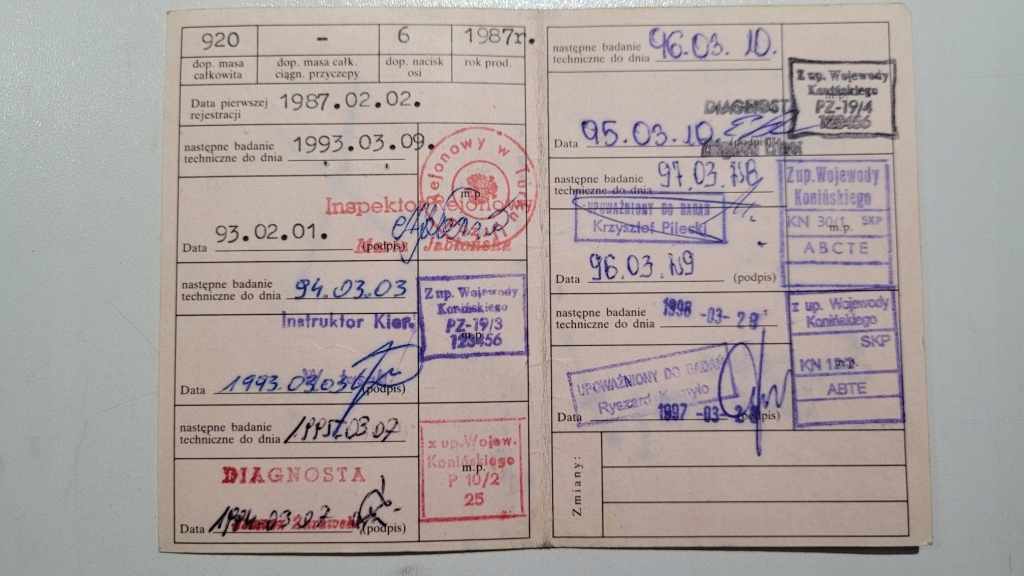 920 - 6 1987r.
dop. masa całkowita
dop. masa całk. ciągn. przyczepy
dop. nacisk osi
rok prod.
Data pierwszej rejestracji 1987.02.02.
następne badanie techniczne do dnia 1993.03.09.
Rejonowy w Turku
m.p.
Inspektor Rejonowy
Jabłońska
Data 93.02.01. (podpis)
następne badanie techniczne do dnia 94.03.03
Z up. Wojewody
Konińskiego
PZ-19/3
m.p.
123456
Instruktor Kier.
Data 1993.03.03 (podpis)
następne badanie techniczne do dnia 1995.03.07
DIAGNOSTA
z up. Wojew.
Konińskiego
m.p.
P 10/2
25
Data 1994.03.07 (podpis)
następne badanie techniczne do dnia 96.03.10.
Z up. Wojewody
Konińskiego
PZ-19/4
123456
DIAGNOSTA
Data 95.03.10. (podpis)
następne badanie techniczne do dnia 97.03.18
UPOWAŻNIONY DO BADAŃ
Krzysztof Pilecki
Z up. Wojewody
Konińskiego
KN 30/1 SKP
m.p.
ABCTE
Data 96.03.19 (podpis)
następne badanie techniczne do dnia 1998 -03- 28
z up. Wojewody
Konińskiego
SKP
KN
m.p.
ABTE
UPOWAŻNIONY DO BADAŃ
Ryszard
Data 1997 -03- 28 (podpis)
Zmiany: